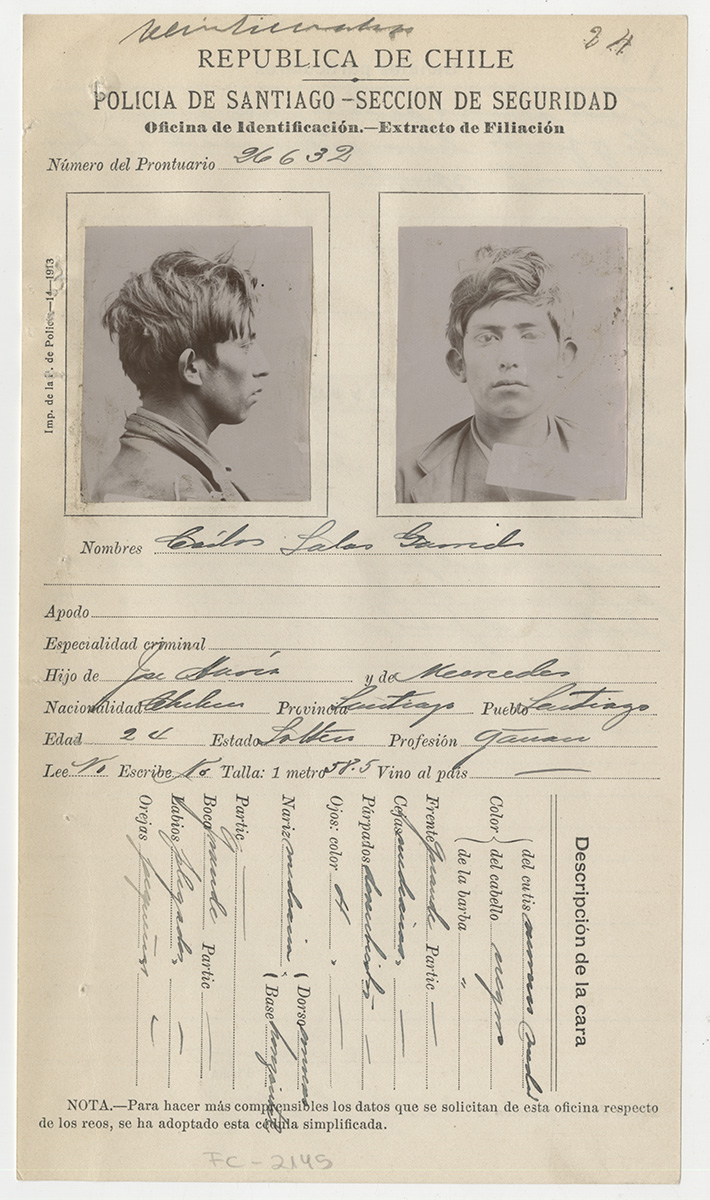 24
REPUBLICA DE CHILE
POLICIA DE SANTIAGO-SECCION DE SEGURIDAD
Oficina de Identificación.—Extracto de Filiación
Número del Prontuario 26632
Imp. de la P. de Policía—14—1913
Nombres Carlos Salas Garrido
Apodo
Especialidad criminal
Hijo de Jose María y de Mercedes
Nacionalidad Chileno Provincia Santiago Pueblo Santiago
Edad 24 Estado Soltero Profesión Gañan
Lee No Escribe No Talla: 1 metro 58.5 Vino al país —
Descripción de la cara
Color { del cutis moreno
del cabello negro
de la barba "
Frente grande Partic —
Cejas medianas —
Párpados —
Ojos: color 4 " —
Nariz mediana { Dorso
Base horizontal
Partic —
Boca grande Partic —
Labios plegados —
Orejas pequeñas
NOTA.—Para hacer más comprensibles los datos que se solicitan de esta oficina respecto
de los reos, se ha adoptado esta cédula simplificada.
FC-2145